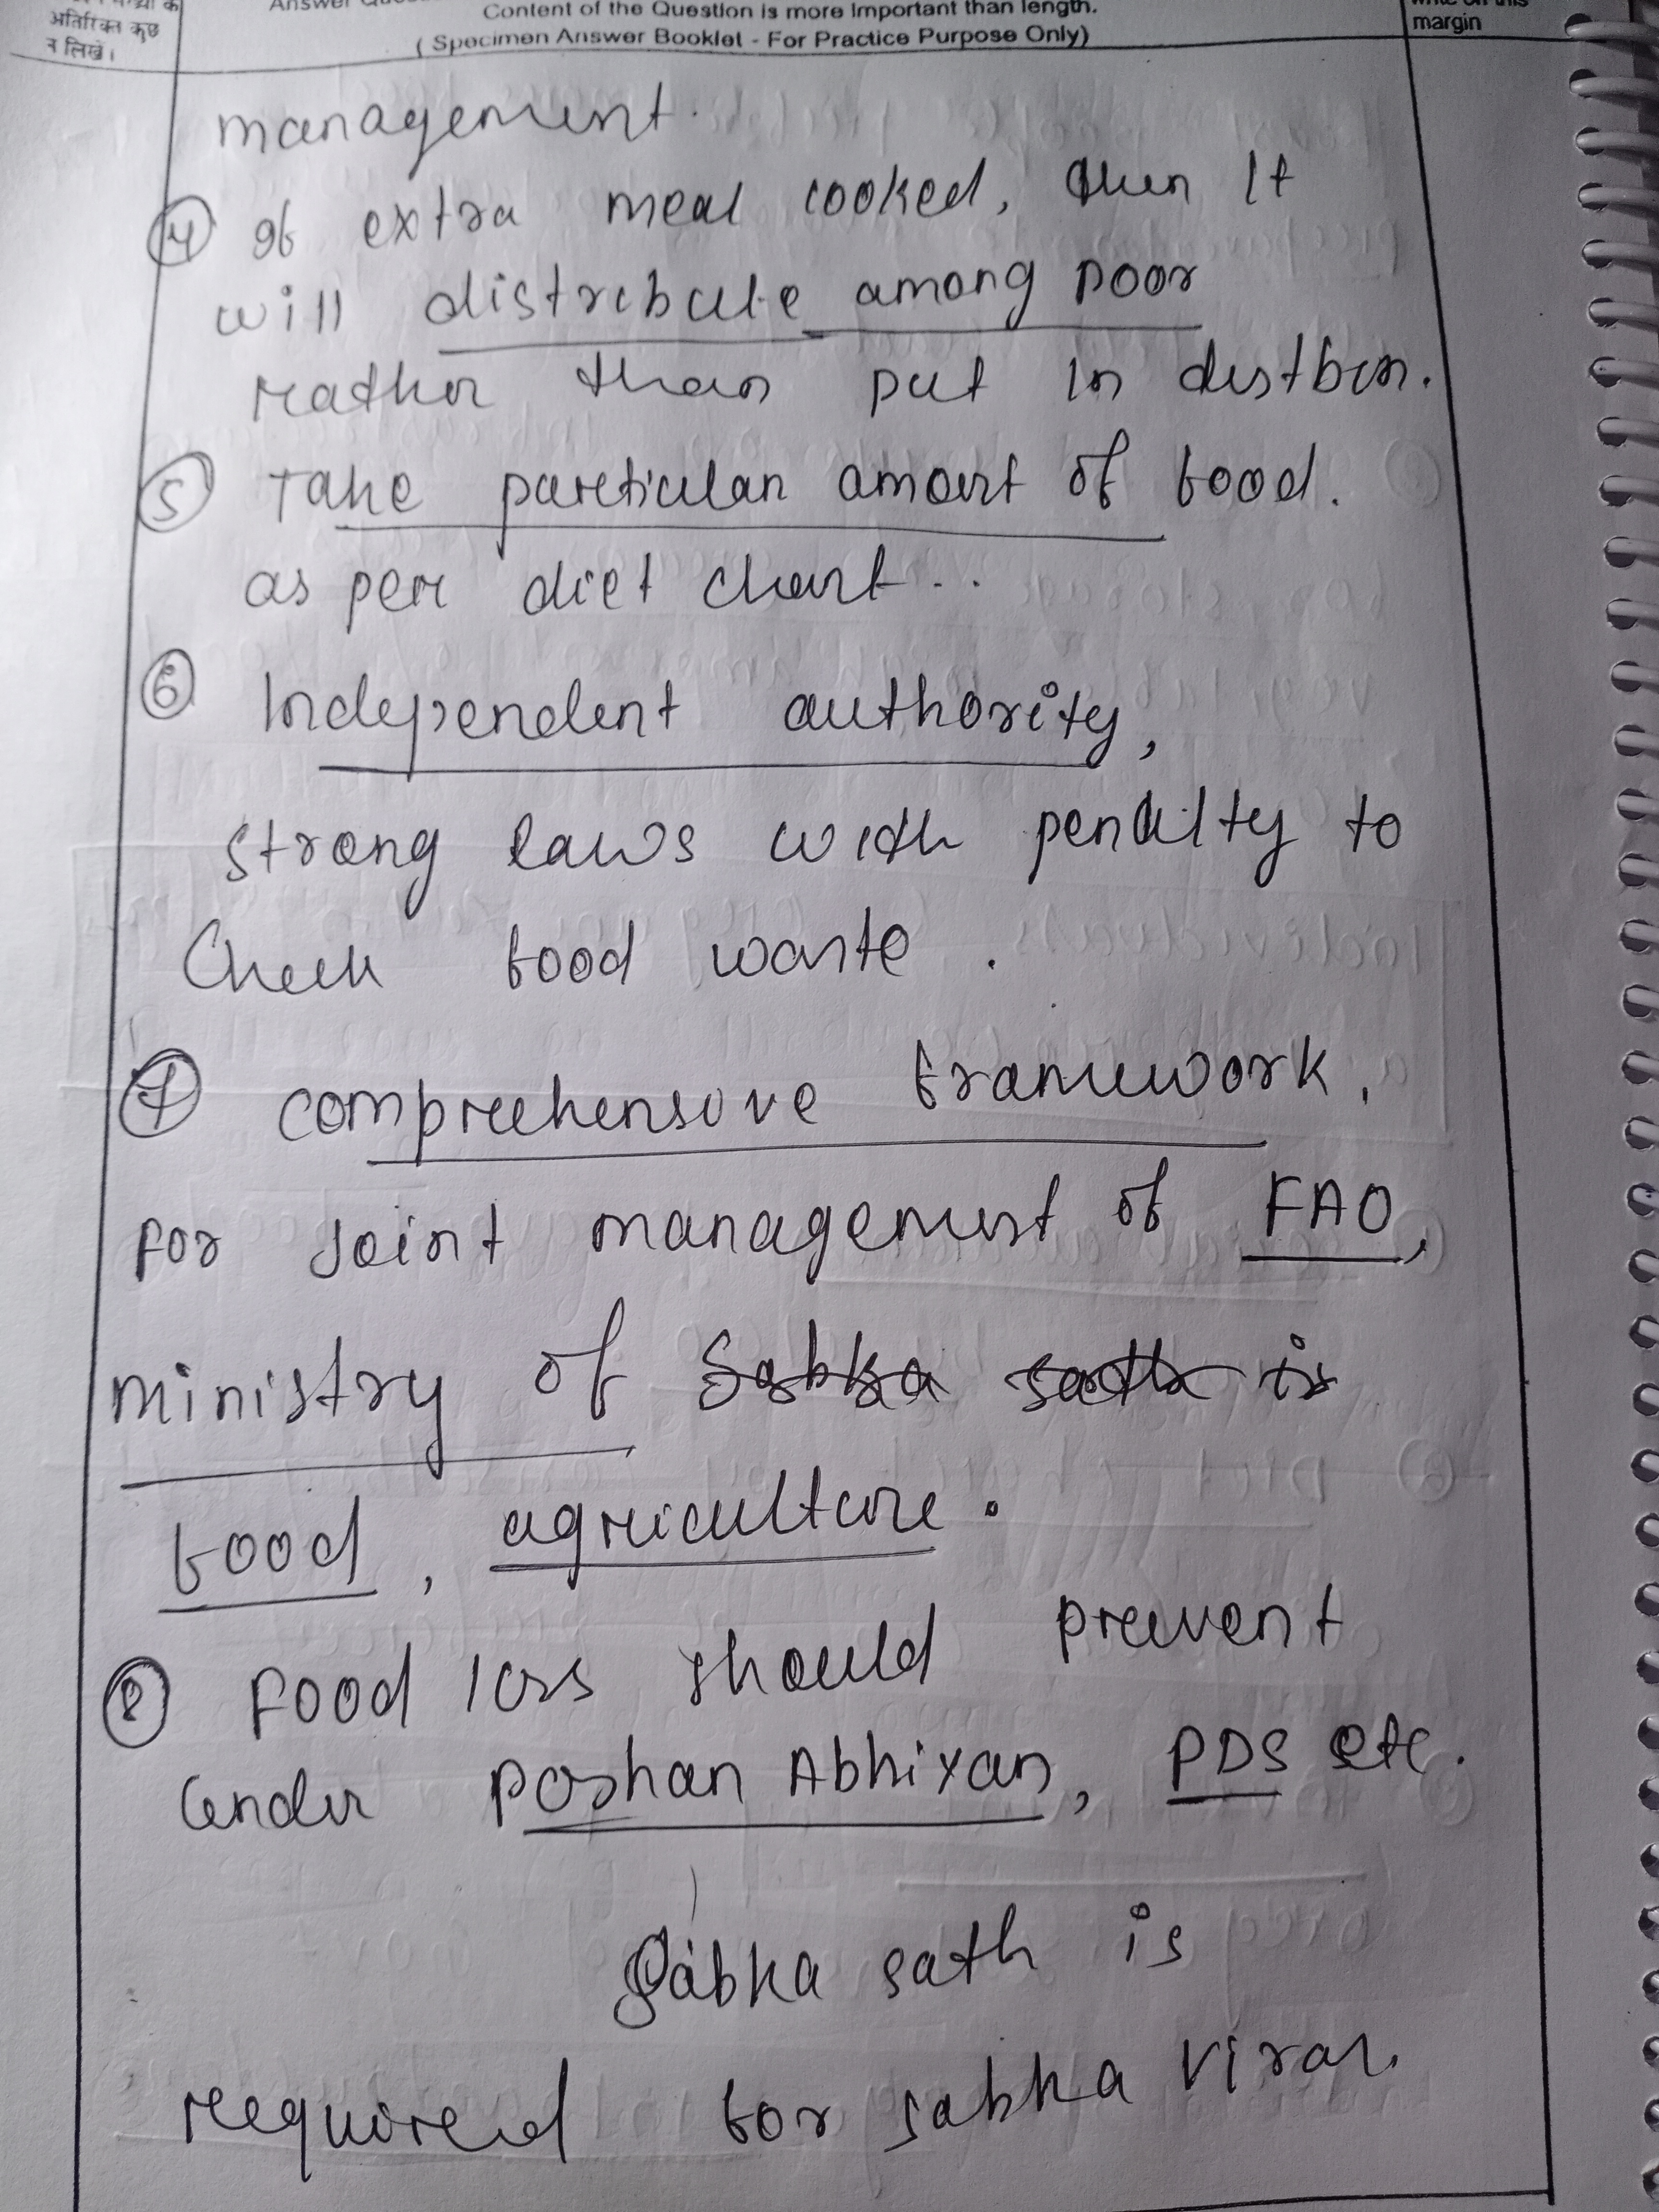 अतिरिक्त कुछ
न लिखें।
Content of the Question is more Important than length.
( Specimen Answer Booklet - For Practice Purpose Only)
margin
management.
④ If extra meal cooked, then It
will distribute among poor
rather than put in dustbin.
⑤ Take particular amount of food.
as per diet chart..
⑥ Independent authority,
strong laws with penalty to
Check food waste.
⑦ comprehensive framework,
For Joint management of FAO,
ministry of Sabka sath is
food, agriculture.
⑧ Food loss should prevent
under Poshan Abhiyan, PDS etc.
Sabka sath is
required for sabka vikas.